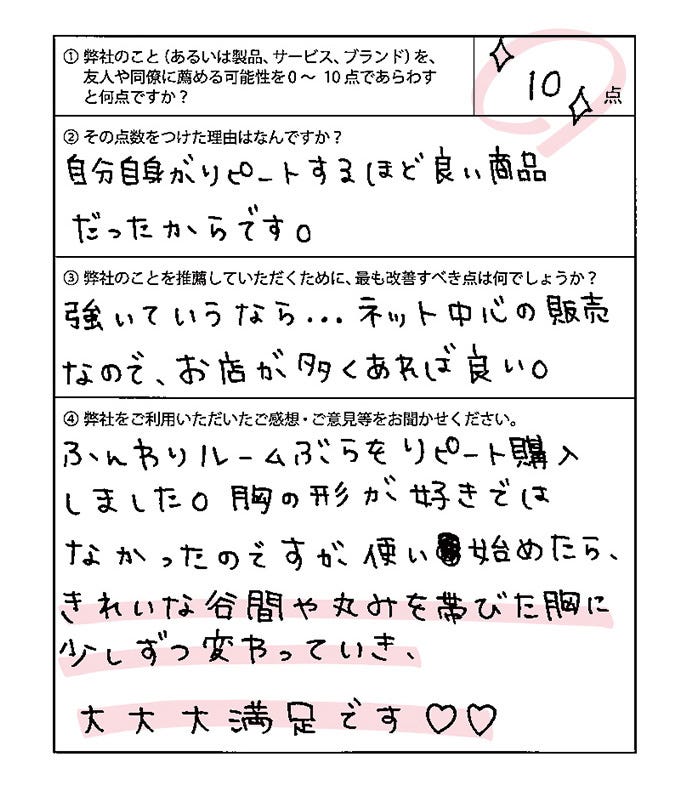 ① 弊社のこと（あるいは製品、サービス、ブランド）を、
友人や同僚に薦める可能性を０～ 10 点であらわす
と何点ですか？
10 点
② その点数をつけた理由はなんですか？
自分自身がリピートするほど良い商品
だったからです。
③ 弊社のことを推薦していただくために、最も改善すべき点は何でしょうか？
強いていうなら...ネット中心の販売
なので、お店が多くあれば良い。
④ 弊社をご利用いただいたご感想・ご意見等をお聞かせください。
ふんわりルームぶらをリピート購入
しました。胸の形が好きでは
なかったのですが、使い始めたら、
きれいな谷間や丸みを帯びた胸に
少しずつ変わっていき、
大大大満足です♡♡